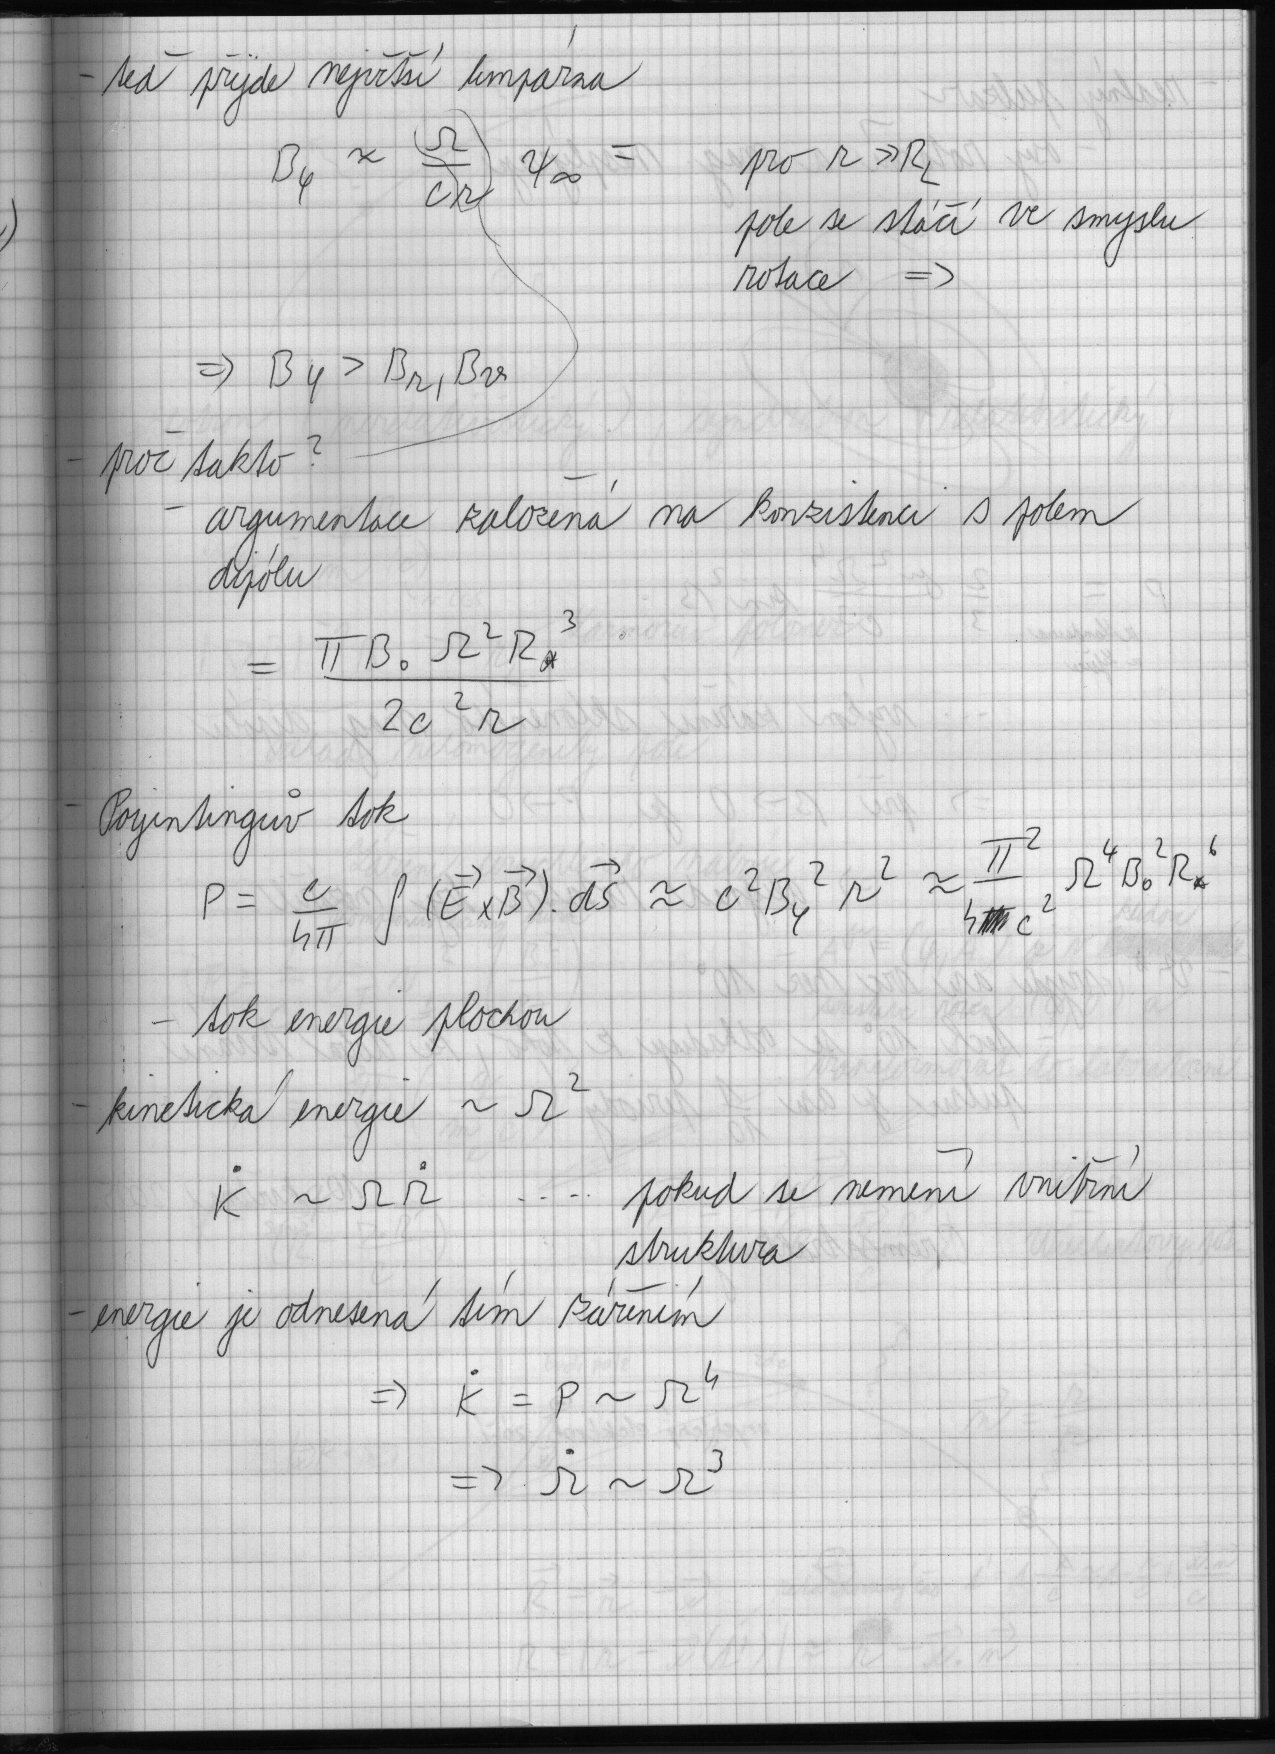 - teď přijde největší lumpárna
B_φ ≈ (Ω/(cr)) ψ_∞ =
pro r ≫ R_L
pole se stáčí ve smyslu
rotace ⇒
⇒ B_φ > B_r, B_ϑ
- proč takto?
- argumentace založená na konzistenci s polem
dipólu
= π B_0 Ω² R_*³ / 2c² r
- Poyintingův tok
P = c/4π ∫ (E⃗ × B⃗) . dS⃗ ≈ c² B_φ² r² ≈ π²/4c² Ω⁴ B_0² R_*⁶
- tok energie plochou
- kinetická energie ~ Ω²
K̇ ~ ΩΩ̇ .... pokud se nemění vnitřní
struktura
- energie je odnesená tím zářením
⇒ K̇ = P ~ Ω⁴
⇒ Ω̇ ~ Ω³